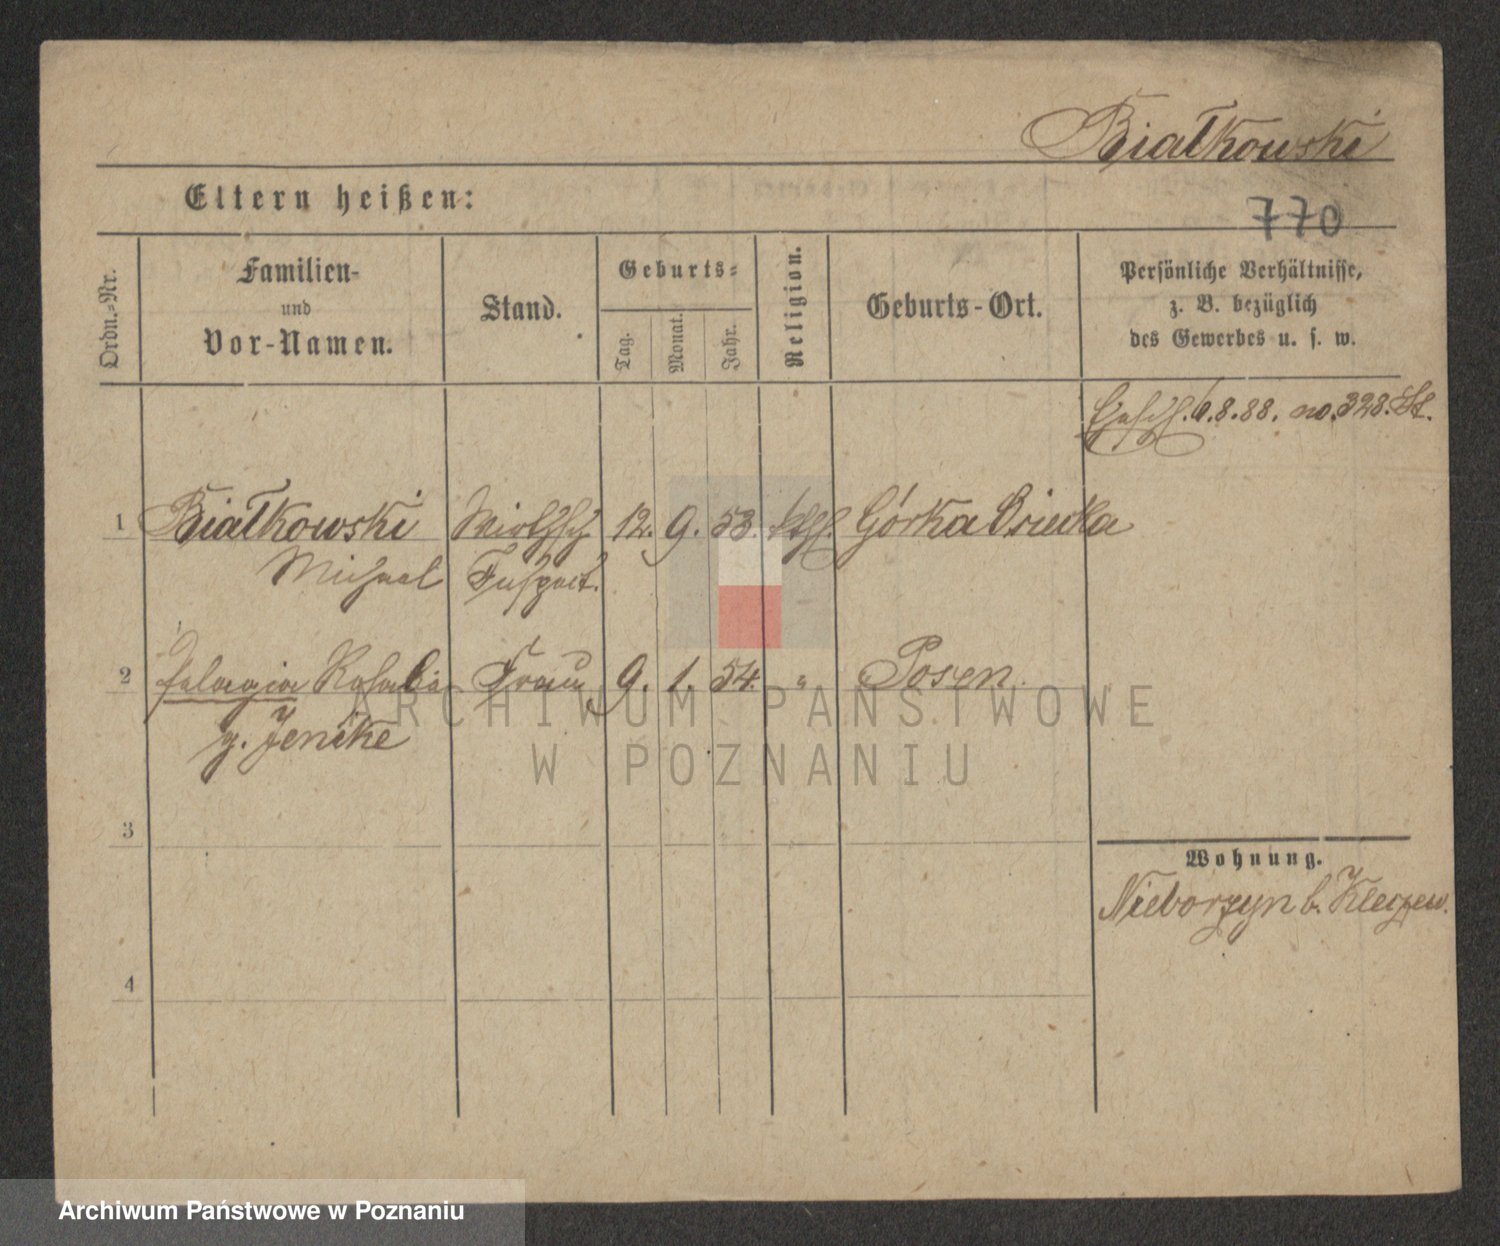 Białkowski
Eltern heißen:
770
Ordn.-Nr.
Familien-
und
Vor-Namen.
Stand.
Geburts-
Tag.
Monat.
Jahr.
Religion.
Geburts-Ort.
Persönliche Verhältnisse,
z. B. bezüglich
des Gewerbes u. s. w.
6.8.88. no. 328. St.
1 Białkowski Wirthsch. 12. 9. 53. kth. Górka
Michael Inspect.
2 Pelagia Rosalia Frau 9. 1. 54. " Posen.
g. Jenike
3
Wohnung.
Nieborzyn b. Kleczew.
4
ARCHIWUM PAŃSTWOWE
W POZNANIU
Archiwum Państwowe w Poznaniu